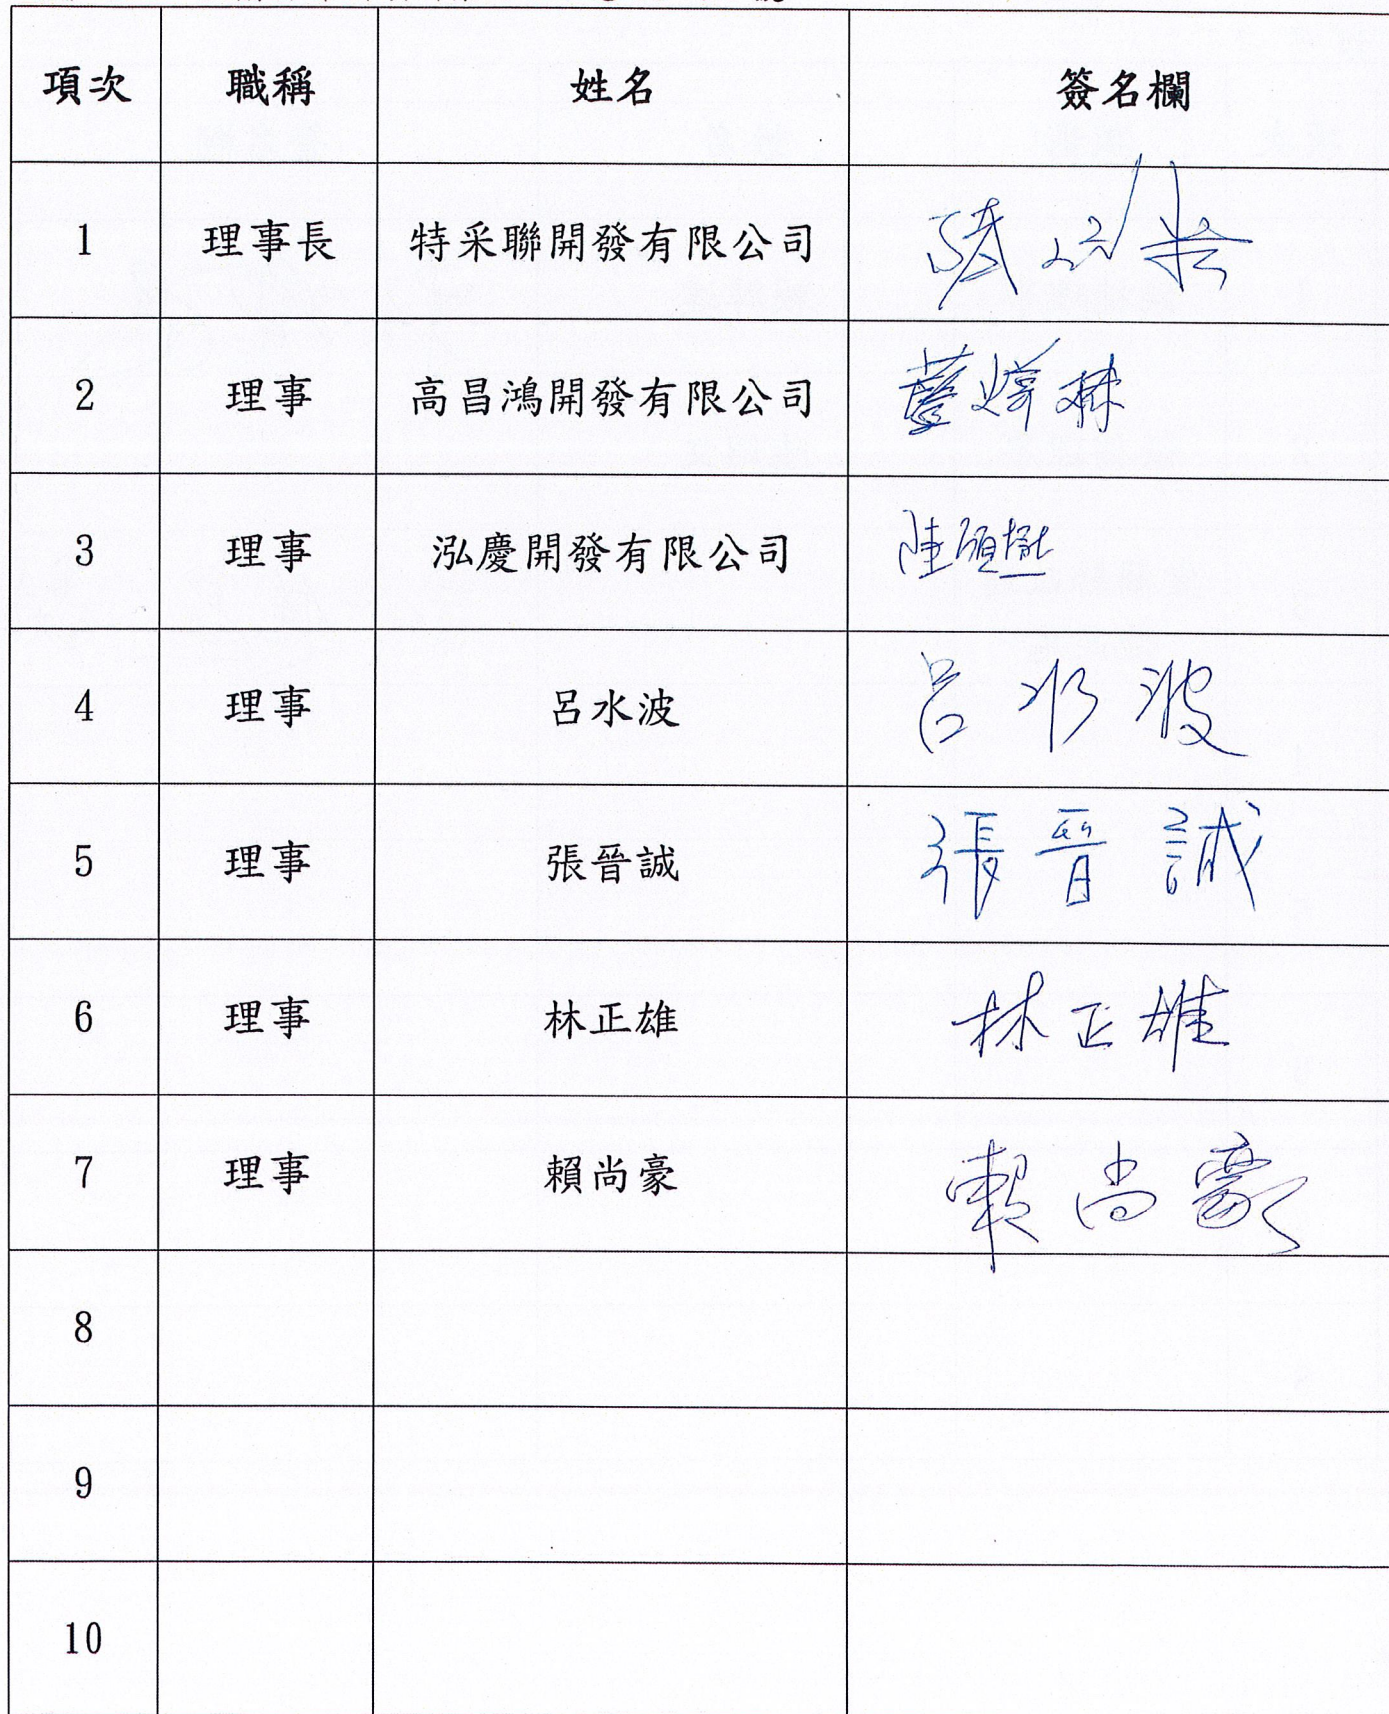 項次 職稱 姓名 簽名欄
1 理事長 特采聯開發有限公司
2 理事 高昌鴻開發有限公司
3 理事 泓慶開發有限公司
4 理事 呂水波 呂水波
5 理事 張晉誠 張晉誠
6 理事 林正雄 林正雄
7 理事 賴尚豪 賴尚豪
8
9
10